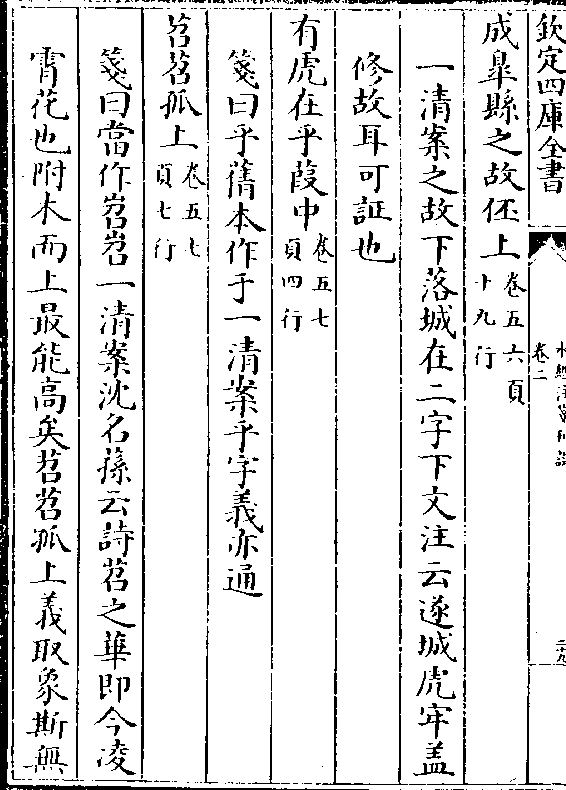 欽定四庫全書
水經注箋刊誤
卷二
二十九
成臯縣之故伾上卷五六頁十九行
一清案之故下落城在二字下文注云遂城虎牢盖
修故耳可証也
有虎在乎葭中卷五七頁四行
箋曰乎舊本作于一清案乎字義亦通
苕苕孤上卷五七頁七行
箋曰當作岧岧一清案沈名蓀云詩苕之華即今凌
霄花也附木而上最能高矣苕苕孤上義取象斯無